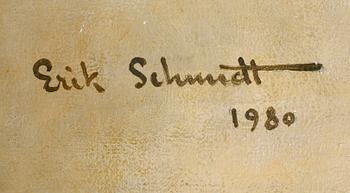 Erik Schmidt
1980